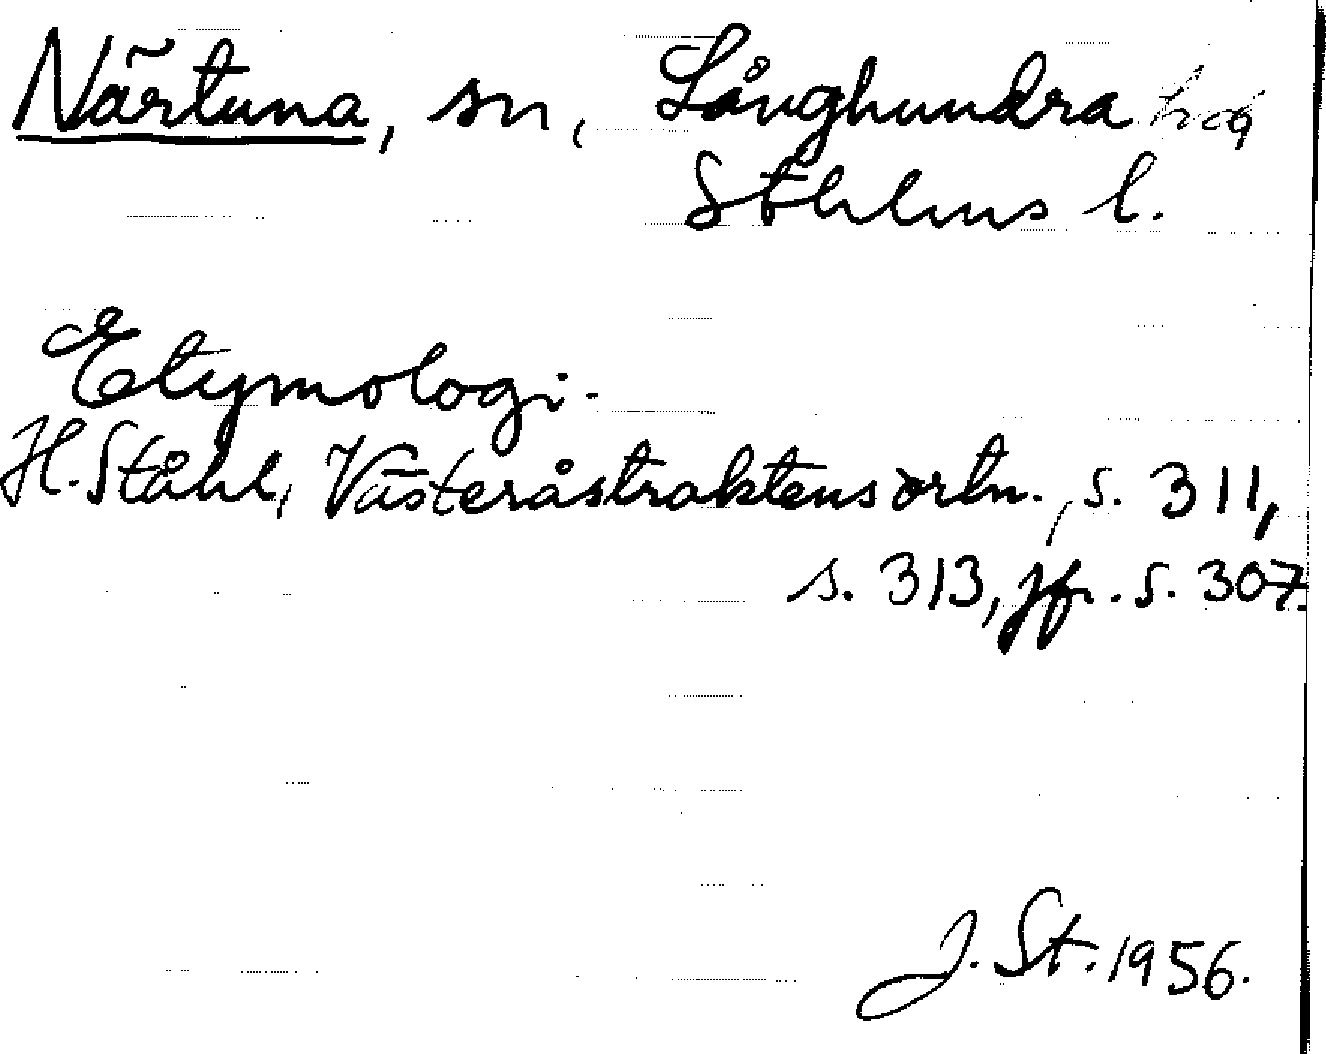 Närtuna, sn, Långhundra hd
Sthlms l.
Etymologi.
H. Ståhl, Västeråstraktens ortn., s. 311,
s. 313, jfr. s. 307.
J. St. 1956.